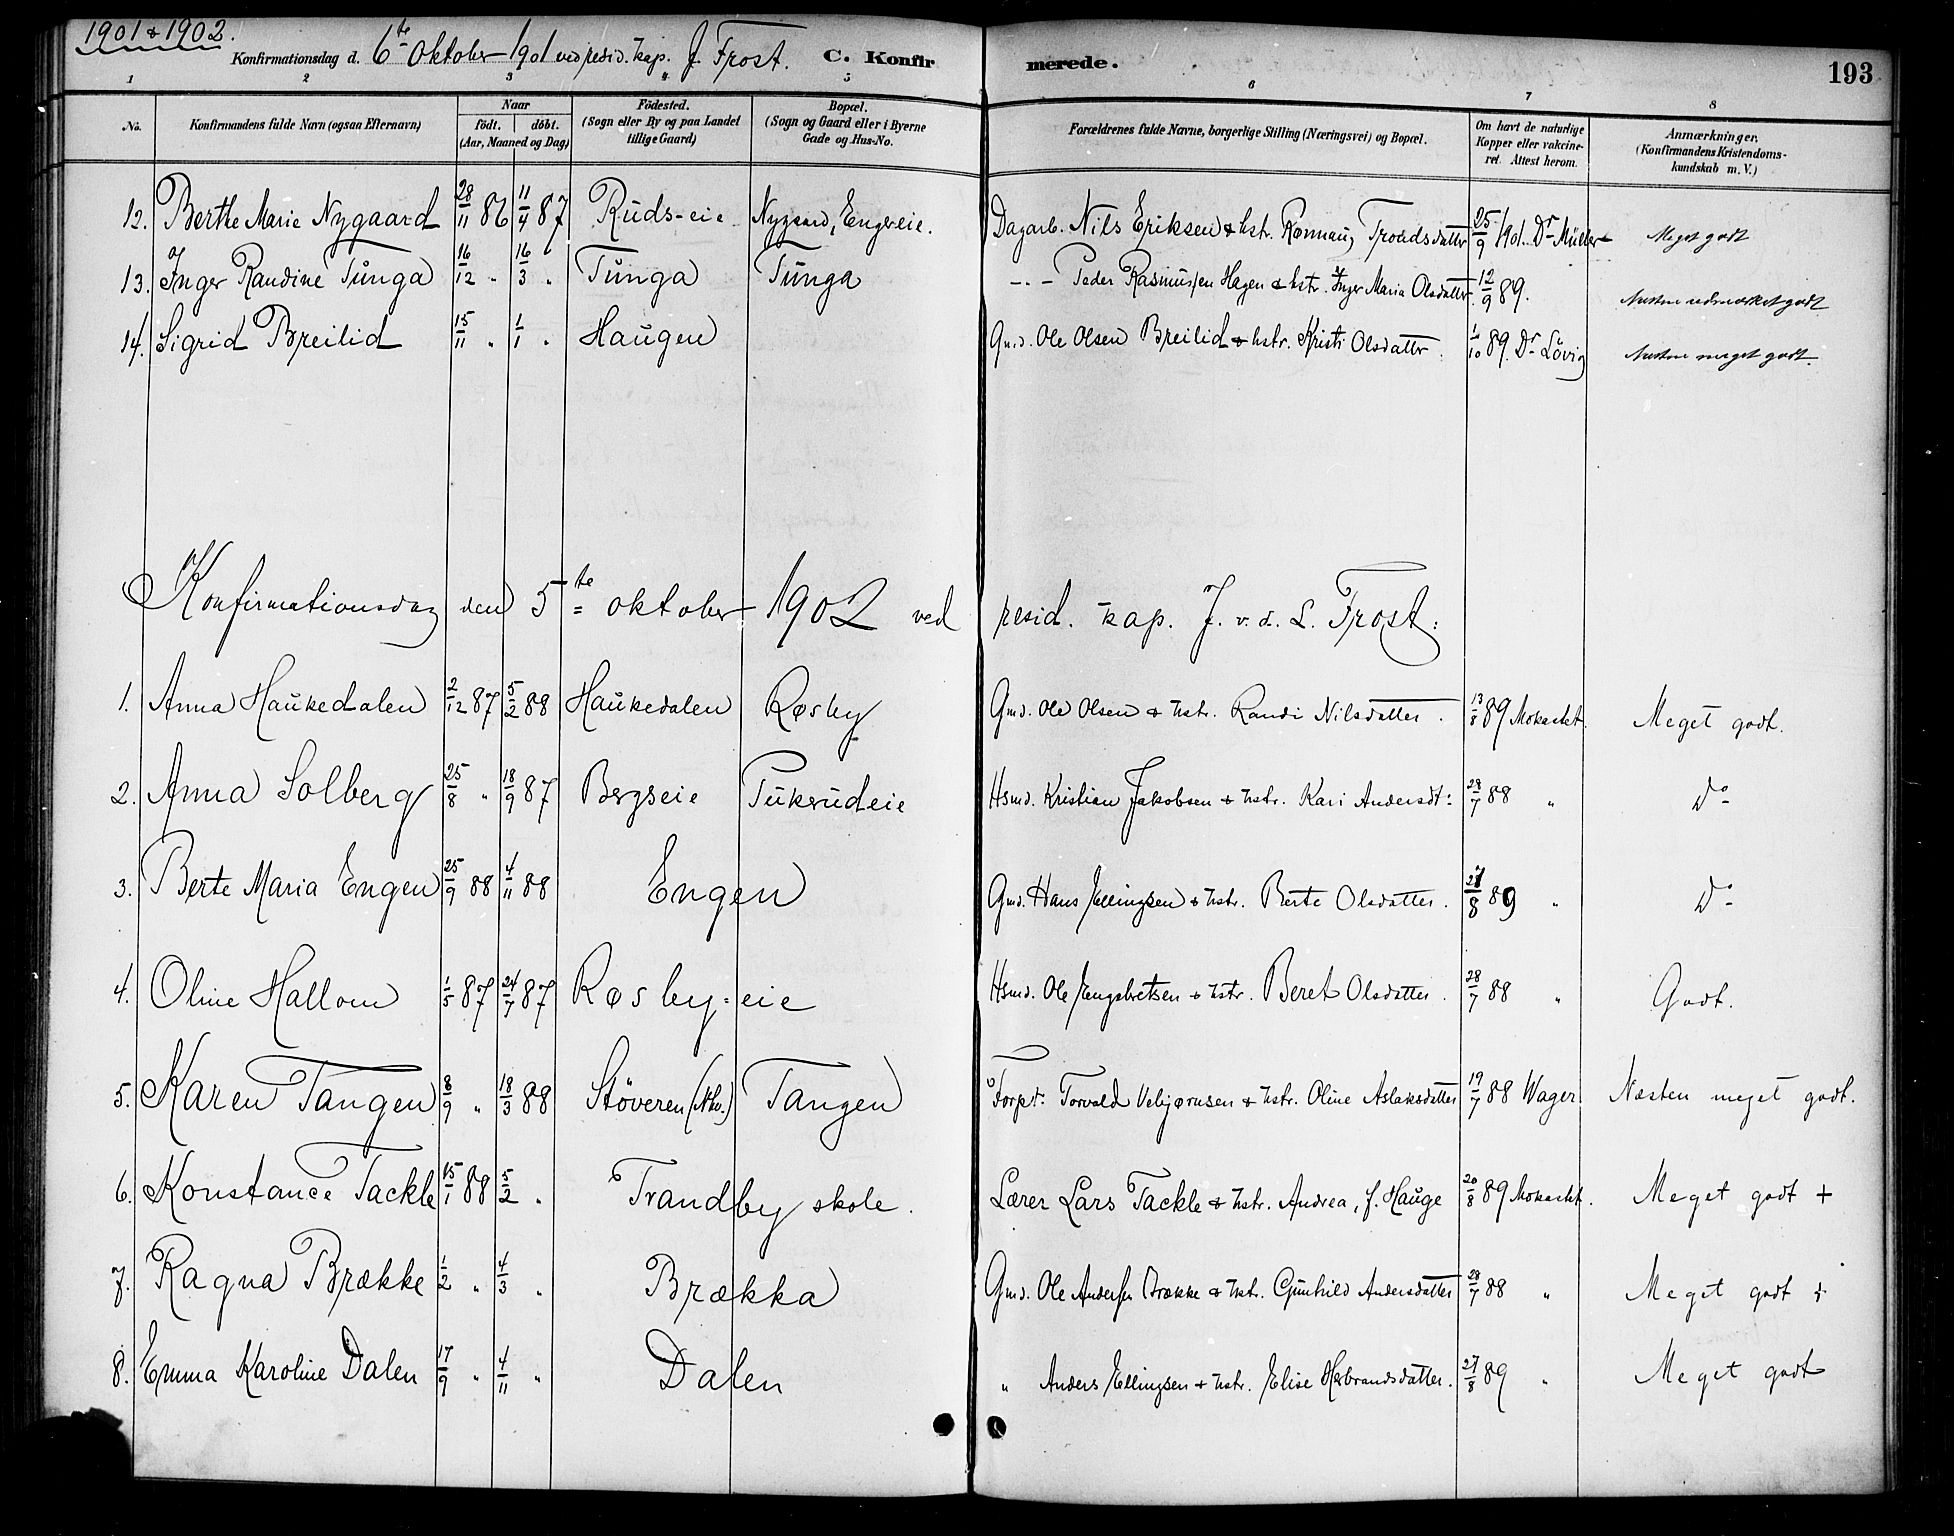 1901 & 1902.
Konfirmationsdag d. 6te Oktober 1901 ved resid. kap. J. Frost. C. Konfirmerede. 193
1 2 3 4 5 6 7 8
No. Konfirmandens fulde Navn (ogsaa Efternavn) Naar födt. döbt. (Aar, Maaned og Dag) Födested. (Sogn eller By og paa Landet tillige Gaard) Bopæl. (Sogn og Gaard eller i Byerne Gade og Hus-No. Forældrenes fulde Navne, borgerlige Stilling (Næringsvei) og Bopæl. Om havt de naturlige Kopper eller vakcineret. Attest herom. Anmærkninger, (Konfirmandens Kristendomskundskab m. V.)
12. Berthe Marie Nygaard 28/11 86 11/4 87 Ruds-eie Nygaard, Engseie. Dagarb. Nils Eriksen & hstr. Rønnaug Trondsdatter 25/9 1901. Dr Müller Meget godt
13. Inger Randine Tunga 16/12 " 16/3 " Tunga Tunga -"- Peder Rasmussen Hagen & hstr. Inger Maria Olsdatter 12/9 89. Næsten udmærket godt
14. Sigrid Breilid 15/11 " 1/1 " Haugen Gmd. Ole Olsen Breilid & hstr. Kristi Olsdatter. 1/10 89. Dr Lövig Næsten meget godt.
Konfirmationsdag den 5te oktober 1902 ved resid. kap. J. v. d. L. Frost:
1. Anna Haukedalen 2/12 87 5/2 88 Haukedalen Røsby Gmd. Ole Olsen & hstr. Randi Nilsdatter. 13/8 89 Mokastet. Meget godt.
2. Anna Solberg 25/8 " 18/9 87 Bergseie Tukerudeie Hsmd. Kristian Jakobsen & hstr. Kari Andersdt: 28/7 88 " Do
3. Berte Maria Engen 25/9 88 4/11 88 Engen Gmd. Hans Ellingsen & hstr. Berte Olsdatter. 27/8 89 " Do
4. Oline Hallom 1/5 87 24/7 87 Røsby-eie Hsmd. Ole Engebretsen & hstr. Beret Olsdatter. 28/7 88 " Godt.
5. Karen Tangen 8/9 " 18/3 88 Støveren (Nho.) Tangen Forpt. Torvald Vebjørnsen & hstr. Oline Aslaksdatter 19/7 88 Wager Næsten meget godt.
6. Konstance Tackle 15/1 88 5/2 " Trandby skole. Lærer Lars Tackle & hstr. Andrea, f. Hauge 20/8 89 Mokastet. Meget godt +
7. Ragna Brække 1/2 " 4/3 " Brækka Gmd. Ole Andersen Brække & hstr. Gunhild Andersdatter 28/7 88 " Meget godt +
8. Emma Karoline Dalen 17/9 " 4/11 " Dalen " Anders Ellingsen & hstr. Elise Herbrandsdatter. 27/8 89 " Meget godt